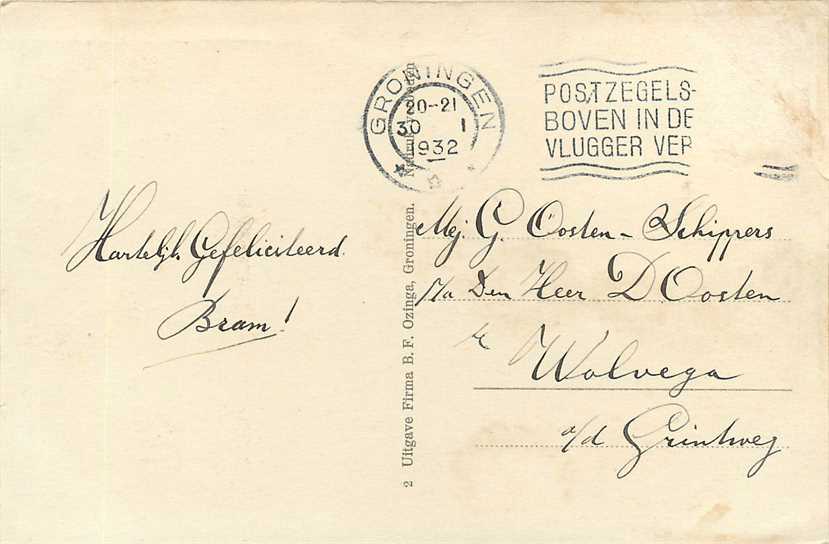 GRONINGEN
20-21
30 I
1932
POSTZEGELS-
BOVEN IN DE
VLUGGER VER
Hartelijk Gefeliciteerd.
Bram!
2 Uitgave Firma B. F. Ozinga, Groningen.
Mej. G. Oosten-Schippers
p/a Den Heer D Oosten
te Wolvega
a/d Grintweg